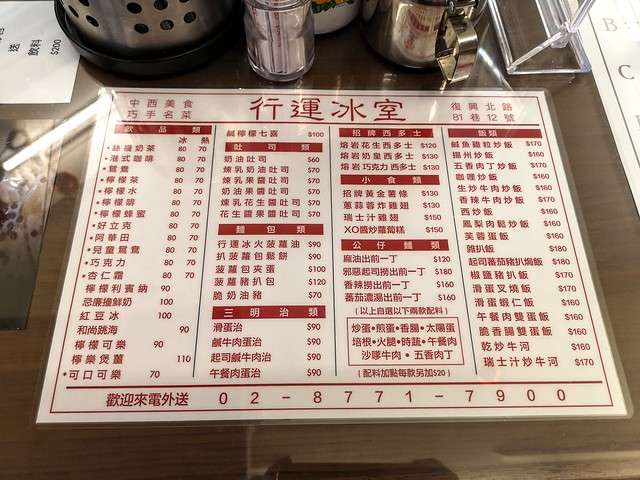 飲料
$200
中西美食
巧手名菜
行運冰室
復興北路
81巷12號
飲品類
冰 熱
•絲襪奶茶 80 70
•港式咖啡 80 70
•鴛鴦 80 70
•檸檬茶 80 70
•檸檬水 80 70
•檸檬啡 80 70
•檸檬蜂蜜 80 70
•好立克 80 70
•阿華田 80 70
•兒童鴛鴦 80 70
•巧克力 80 70
•杏仁霜 80 70
檸檬利賓納 90
忌廉撞鮮奶 100
紅豆冰 100
和尚跳海 90
檸檬可樂 90
檸樂煲薑 110
•可口可樂 70
鹹檸檬七喜 $100
吐司類
奶油吐司 $60
煉乳奶油吐司 $70
煉乳果醬吐司 $70
奶油果醬吐司 $70
煉乳花生醬吐司 $70
花生醬果醬吐司 $70
麵包類
行運冰火菠蘿油 $90
扒菠蘿包鬆餅 $90
菠蘿包夾蛋 $100
菠蘿豬扒包 $120
脆奶油豬 $70
三明治類
滑蛋治 $90
鹹牛肉蛋治 $90
起司鹹牛肉治 $90
午餐肉蛋治 $90
招牌西多士
熔岩花生西多士 $120
熔岩奶皇西多士 $130
熔岩巧克力西多士 $130
小食類
招牌黃金薯條 $130
蔥蒜蓉炸雞翅 $130
瑞士汁雞翅 $150
XO醬炒蘿蔔糕 $150
公仔麵類
麻油出前一丁 $120
邪惡起司撈出前一丁 $180
香辣撈出前一丁 $160
蕃茄濃湯出前一丁 $160
(以上自選以下兩款配料)
炒蛋•煎蛋•香腸•太陽蛋
培根•火腿•時蔬•午餐肉
沙嗲牛肉•五香肉丁
(配料加點每款另加$20)
飯類
鹹魚雞粒炒飯 $170
揚州炒飯 $160
五香肉丁炒飯 $170
咖哩炒飯 $160
生炒牛肉炒飯 $160
香辣牛肉炒飯 $170
西炒飯 $160
鳳梨肉鬆炒飯 $160
芙蓉蛋飯 $160
雜扒飯 $180
起司蕃茄豬扒焗飯 $180
椒鹽豬扒飯 $170
滑蛋叉燒飯 $170
滑蛋蝦仁飯 $160
午餐肉雙蛋飯 $160
脆香腸雙蛋飯 $160
乾炒牛河 $160
瑞士汁炒牛河 $170
歡迎來電外送 02-8771-7900
B:
C